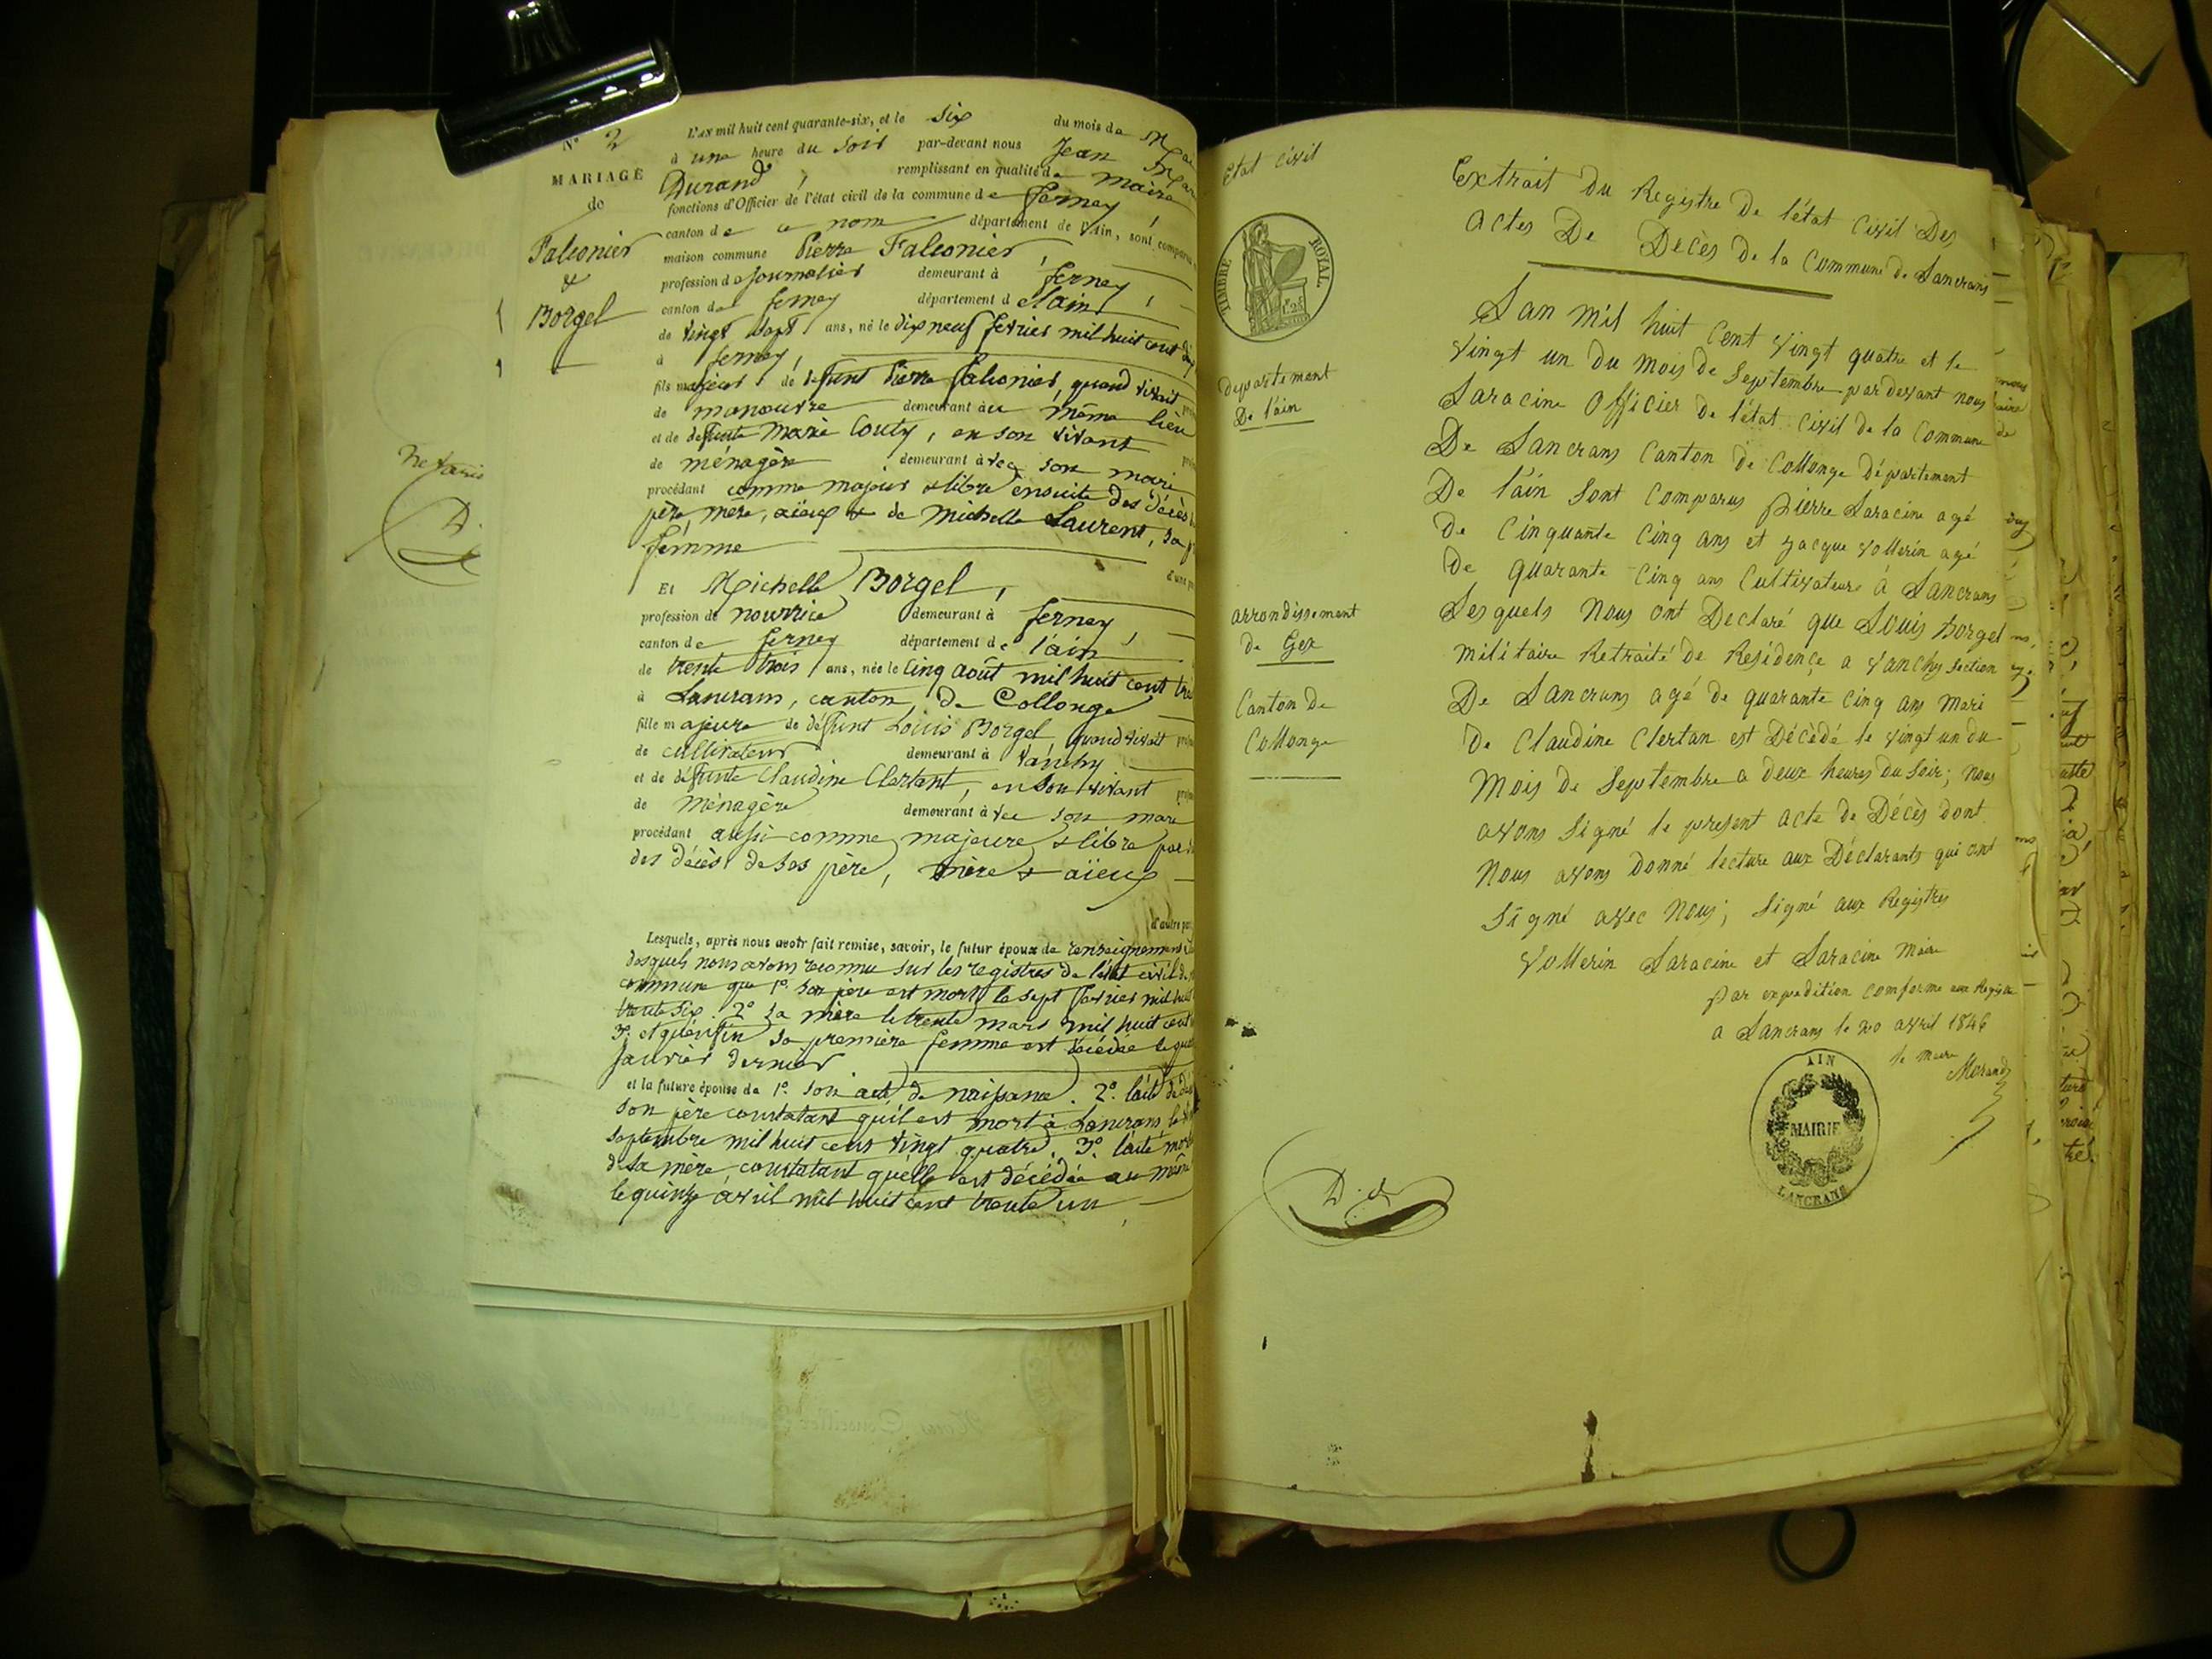 N° 2
MARIAGE
de
Falconier
&
Borgel
L'an mil huit cent quarante-six, et le six du mois de
à une heure du soir par-devant nous Jean
Durand, remplissant en qualité de maire
fonctions d'Officier de l'état civil de la commune de ferney
canton de ce nom département de l'Ain, sont comparus
maison commune Pierre Falconier,
profession de journalier demeurant à ferney,
canton de ferney département de l'ain,
de vingt sept ans, né le dix neuf fevrier mil huit cent
à ferney,
fils majeur de defunt Pierre falconier, quand vivait
de manouvre demeurant au même lieu
et de defunte Marie Couty, en son vivant
de ménagère demeurant avec son mari
procédant comme majeur & libre ensuite des décès
père, mère, aïeux & de Michelle Laurent, sa
femme
d'une
Et Michelle Borgel,
profession de nourrice demeurant à ferney,
canton de ferney département de l'ain
de trente trois ans, née le cinq août mil huit cent
à Lancrans, canton de Collonge
fille majeure de défunt Louis Borgel, quand vivait
de cultivateur demeurant à Vanchy
et de défunte Claudine Clertant, en son vivant
de ménagère demeurant avec son mari
procédant aussi comme majeure & libre par
des décès de ses père, mère & aïeux
d'autre
Lesquels, après nous avoir fait remise, savoir, le futur époux de renseignements
desquels nous avons reconnu sur les registres de l'état civil de
commune que 1° son père est mort le sept fevrier mil huit
trente six. 2° sa mère le trente mars mil huit cent
3° et qu'enfin sa première femme est décédée le
janvier dernier
et la future épouse de 1° son acte de naissance. 2° l'acte de
son père constatant qu'il est mort à Lancrans le
septembre mil huit cent vingt quatre. 3° l'acte
de sa mère constatant qu'elle est décédée au même
le quinze avril mil huit cent trente un
Etat civil
TIMBRE ROYAL
département
De l'ain
arrondissement
de Gex
Canton de
Collonge
Extrait du Registre De l'état Civil Des
Actes De Décès de la Commune de Lancrans
Lan mil huit Cent vingt quatre et le
vingt un du mois de Septembre par devant nous
Saracine Officier de l'état civil de la Commune
De Lancrans Canton de Collonge département
De l'ain sont Comparus pierre Saracine agé
De Cinquante Cinq ans et jacque vollerin agé
De quarante Cinq ans Cultivateurs à Lancrans
Lesquels Nous ont Declaré que Louis Borgel
militaire Retraité de Residence a vanchy section
De Lancrans agé de quarante cinq ans mari
De Claudine Clertan est Décédé le vingt un du
Mois de Septembre a deux heures du Soir; nous
avons Signé le present acte de Décès dont
Nous avons donné lecture aux Déclarants qui ont
Signé avec Nous; Signé aux Registres
Vollerin Saracine et Saracine Maire
par expedition conforme aux Registre
a Lancrans le 20 avril 1846
le maire
Morand
AIN
MAIRIE
LANCRANS